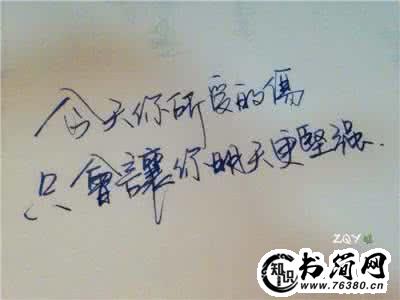 今天你所受的傷
只會讓你明天更堅强.
ZQY
知识
书简网
www.76380.cn